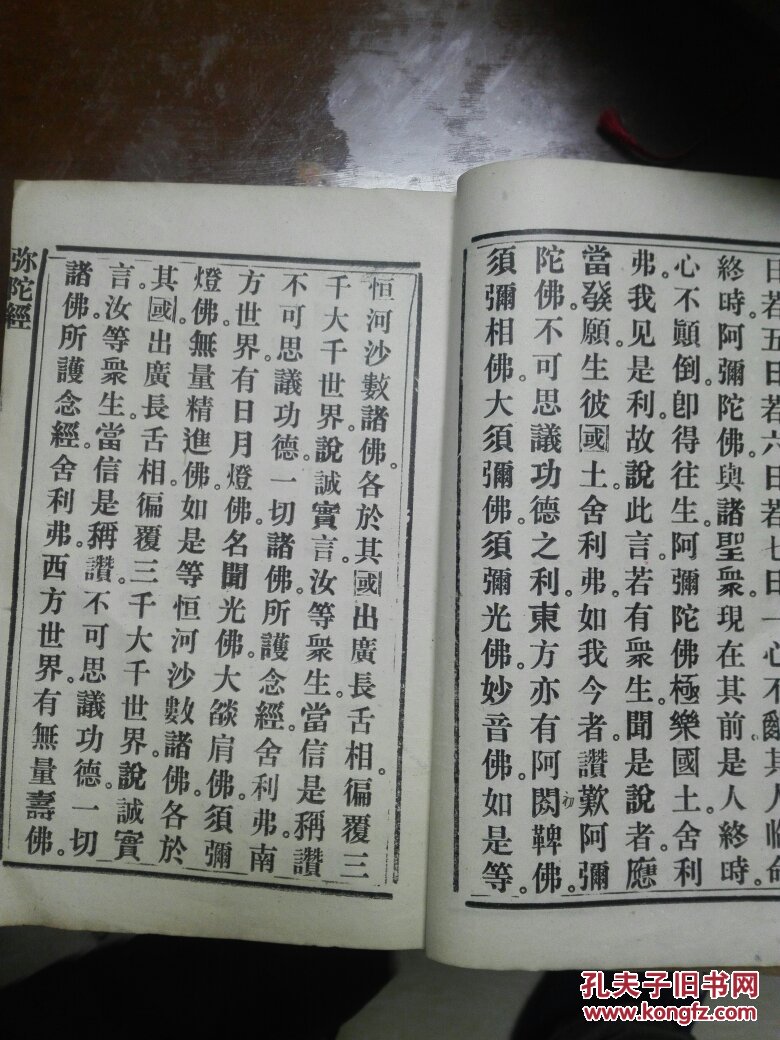 日若五日若六日若七日一心不亂其人臨命
終時。阿彌陀佛。與諸聖衆。現在其前。是人終時。
心不顚倒。卽得往生。阿彌陀佛。極樂國土。舍利
弗。我见是利。故說此言。若有衆生。聞是說者。應
當發願。生彼國土。舍利弗。如我今者。讚歎阿彌
陀佛。不可思議功德之利。東方亦有阿閦鞞佛。
須彌相佛。大須彌佛。須彌光佛。妙音佛。如是等。
初
恒河沙數諸佛。各於其國。出廣長舌相。徧覆三
千大千世界。說誠實言。汝等衆生。當信是稱讚
不可思議功德。一切諸佛。所護念經。舍利弗。南
方世界。有日月燈佛。名聞光佛。大燄肩佛。須彌
燈佛。無量精進佛。如是等恒河沙數諸佛。各於
其國。出廣長舌相。徧覆三千大千世界。說誠實
言。汝等衆生。當信是稱讚。不可思議功德。一切
諸佛。所護念經。舍利弗。西方世界。有無量壽佛。
弥陀經
孔夫子旧书网
www.kongfz.com